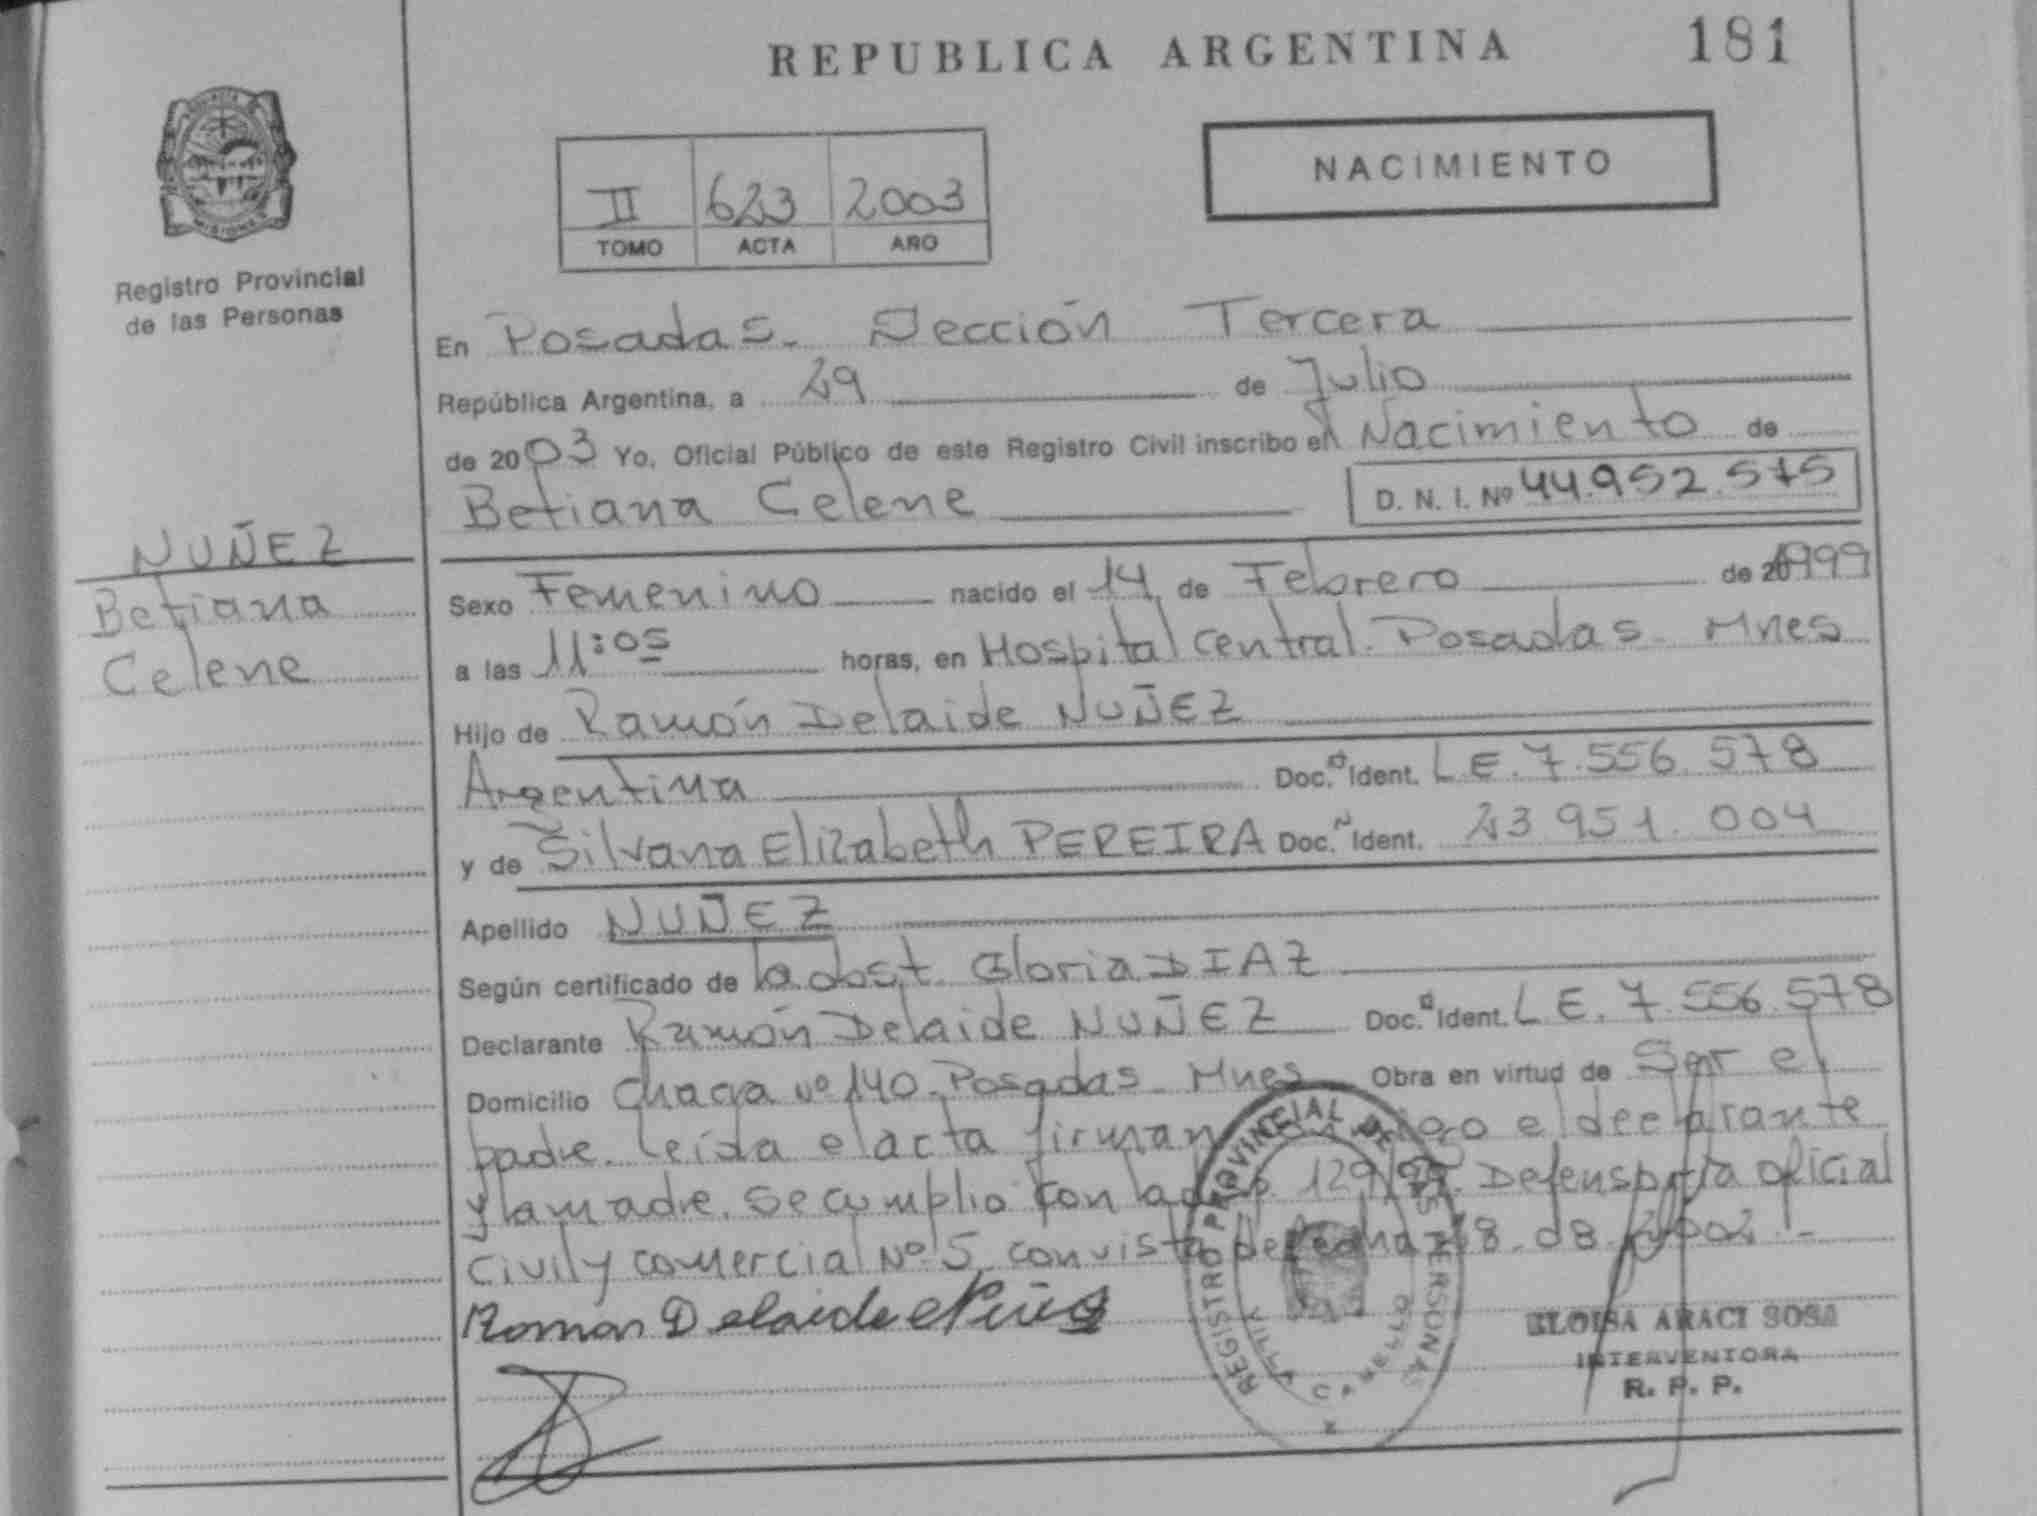 REPUBLICA ARGENTINA
181
MISIONES
Registro Provincial
de las Personas
II 623 2003
TOMO ACTA AÑO
NACIMIENTO
En Posadas. Sección Tercera
República Argentina, a 29 de Julio
de 2003 Yo, Oficial Público de este Registro Civil inscribo el Nacimiento de
Betiana Celene D. N. I. Nº 44.952.575
NUÑEZ
Betiana
Celene
Sexo Femenino nacido el 14 de Febrero de 1999
a las 11:05 horas, en Hospital Central. Posadas. Mnes
Hijo de Ramón Delaide NUÑEZ
Argentina Doc. Ident. L.E. 7.556.578
y de Silvana Elizabeth PEREIRA Doc. Ident. 23 951.004
Apellido NUÑEZ
Según certificado de la obst. Gloria DIAZ
Declarante Ramón Delaide NUÑEZ Doc. Ident. L E. 7.556.578
Domicilio Chacra Nº 140. Posadas Mnes Obra en virtud de Ser el
padre. Leída el acta firman el declarante
y la madre. Se cumplió con la 129 Defensoria oficial
Civil y comercial Nº 5 con vista de fecha 28.08.2002.-
Ramon Delaide Nuñez
REGISTRO PROVINCIAL DE LAS PERSONAS
VILLA CABELLO
ELOISA ARACI SOSA
INTERVENTORA
R. P. P.